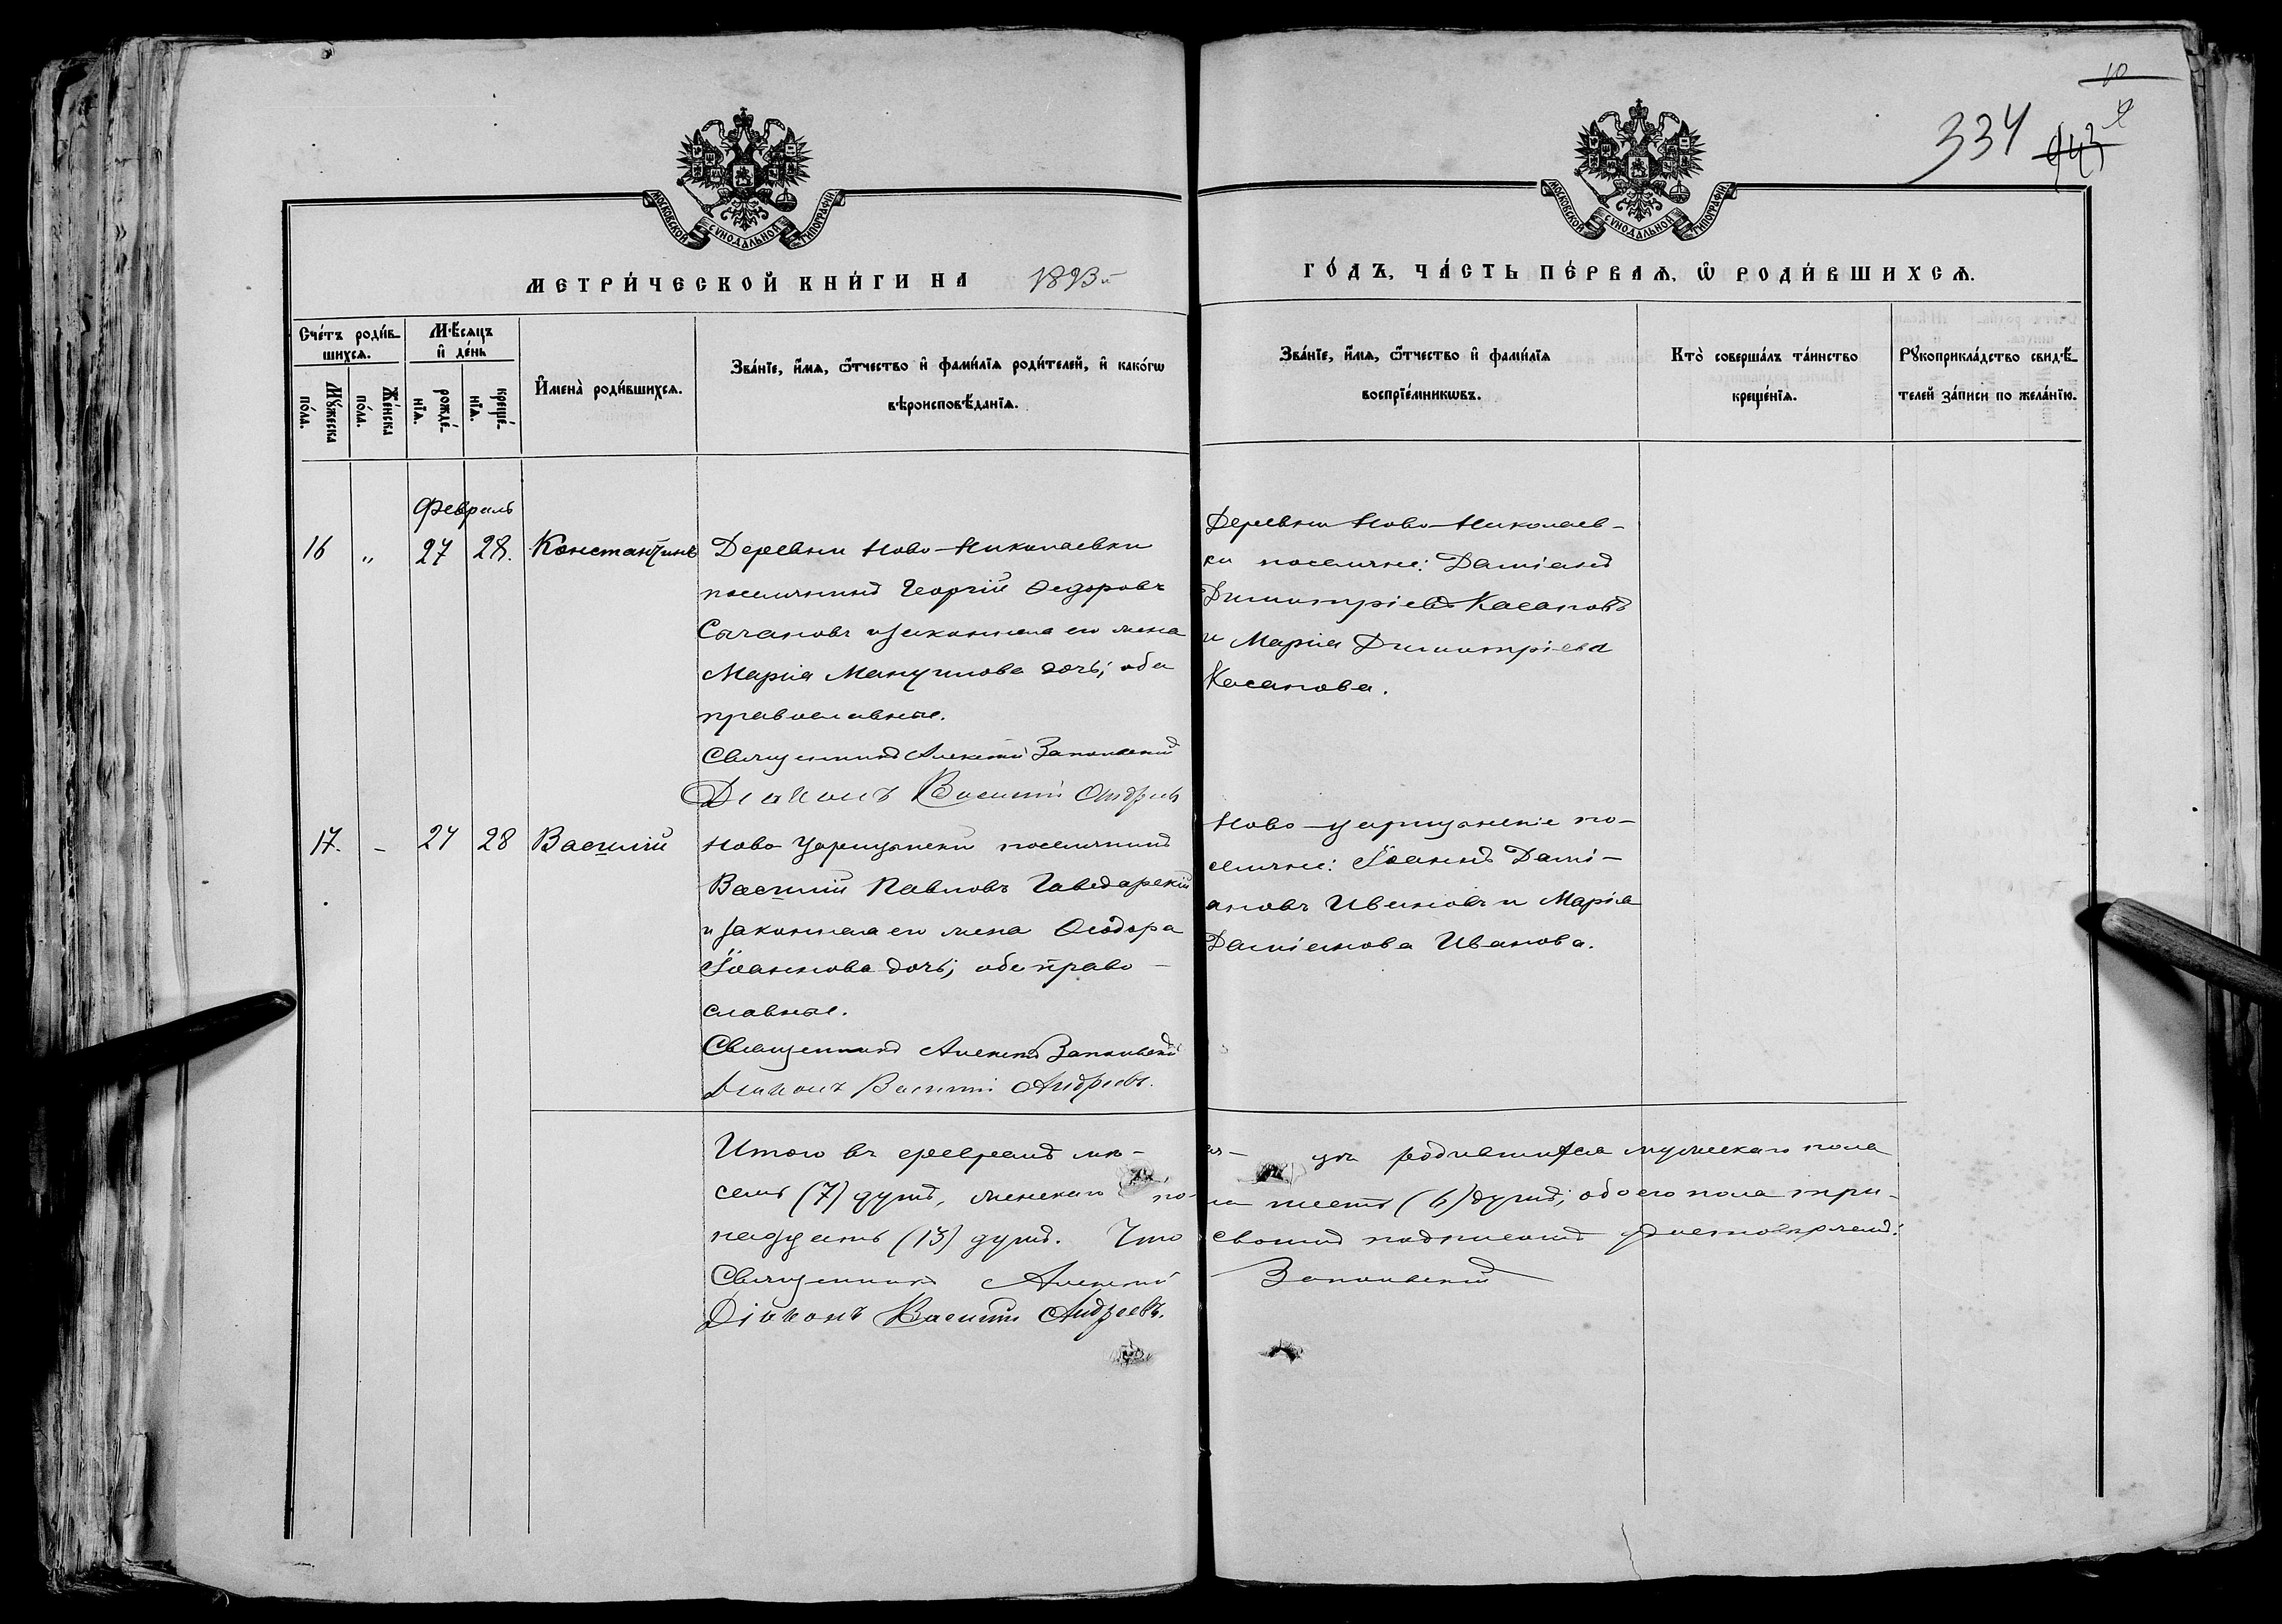 10
334
943
МОСКОВСКОЙ СѴНОДАЛЬНОЙ ТИПОГРАФІИ
МОСКОВСКОЙ СѴНОДАЛЬНОЙ ТИПОГРАФІИ
МЕТРИ́ЧЕСКОЙ КНИ́ГИ НА 1893й
ГО́ДЪ, ЧА́СТЬ ПЕ́РВАѦ, Ѡ҆ РОДИ́ВШИХСѦ.
Сче́тъ роди́в-
шихсѧ.
Мꙋ́жеска
по́ла.
Же́нска
по́ла.
Мѣ́сяцъ
и҆ де́нь
рожде́-
нїѧ.
креще́-
нїѧ.
И҆мена̀ роди́вшихсѧ.
Зва́нїе, и҆́мѧ, ѻ҆́тчество и҆ фами́лїѧ роди́телей, и҆ како́гѡ
вѣроисповѣ́данїѧ.
Зва́нїе, и҆́мѧ, ѻ҆́тчество и҆ фами́лїѧ
воспрїе́мникѡвъ.
Кто̀ соверша́лъ та́инство
креще́нїѧ.
Рꙋкоприкла́дство свидѣ́-
телей за́писи по жела́нїю.
Февраль
16 „ 27 28. Константинъ
Деревни Ново-Николаевки
поселянинъ Георгій Ѳедоровъ
Сычановъ и законная его жена
Марія Мануилова дочь; оба
православные.
Священникъ Алексій Запольскій
Діаконъ Василій Андреевъ
Деревни Ново-Николаев-
ки поселяне: Даміанъ
Димитріевъ Касаповъ
и Марія Димитріева
Касапова.
17. – 27 28 Василій
Ново-Царицынскій поселянинъ
Василій Павловъ Гаведарскій
и законная его жена Ѳеодора
Іоаннова дочь; оба право-
славные.
Священникъ Алексій Запольскій
Діаконъ Василій Андреевъ.
Ново-царицынскіе по-
селяне: Іоаннъ Дамі-
ановъ Ивановъ и Марія
Даміанова Иванова.
Итого въ февралѣ мѣ-сяцѣ родившихся мужескаго пола
семь (7) душъ, женскаго пола шесть (6) душъ; обоего пола три-
надцать (13) душъ. Что своимъ подписомъ удостовѣряемъ:
Священникъ Алексій Запольскій
Діаконъ Василій Андреевъ.